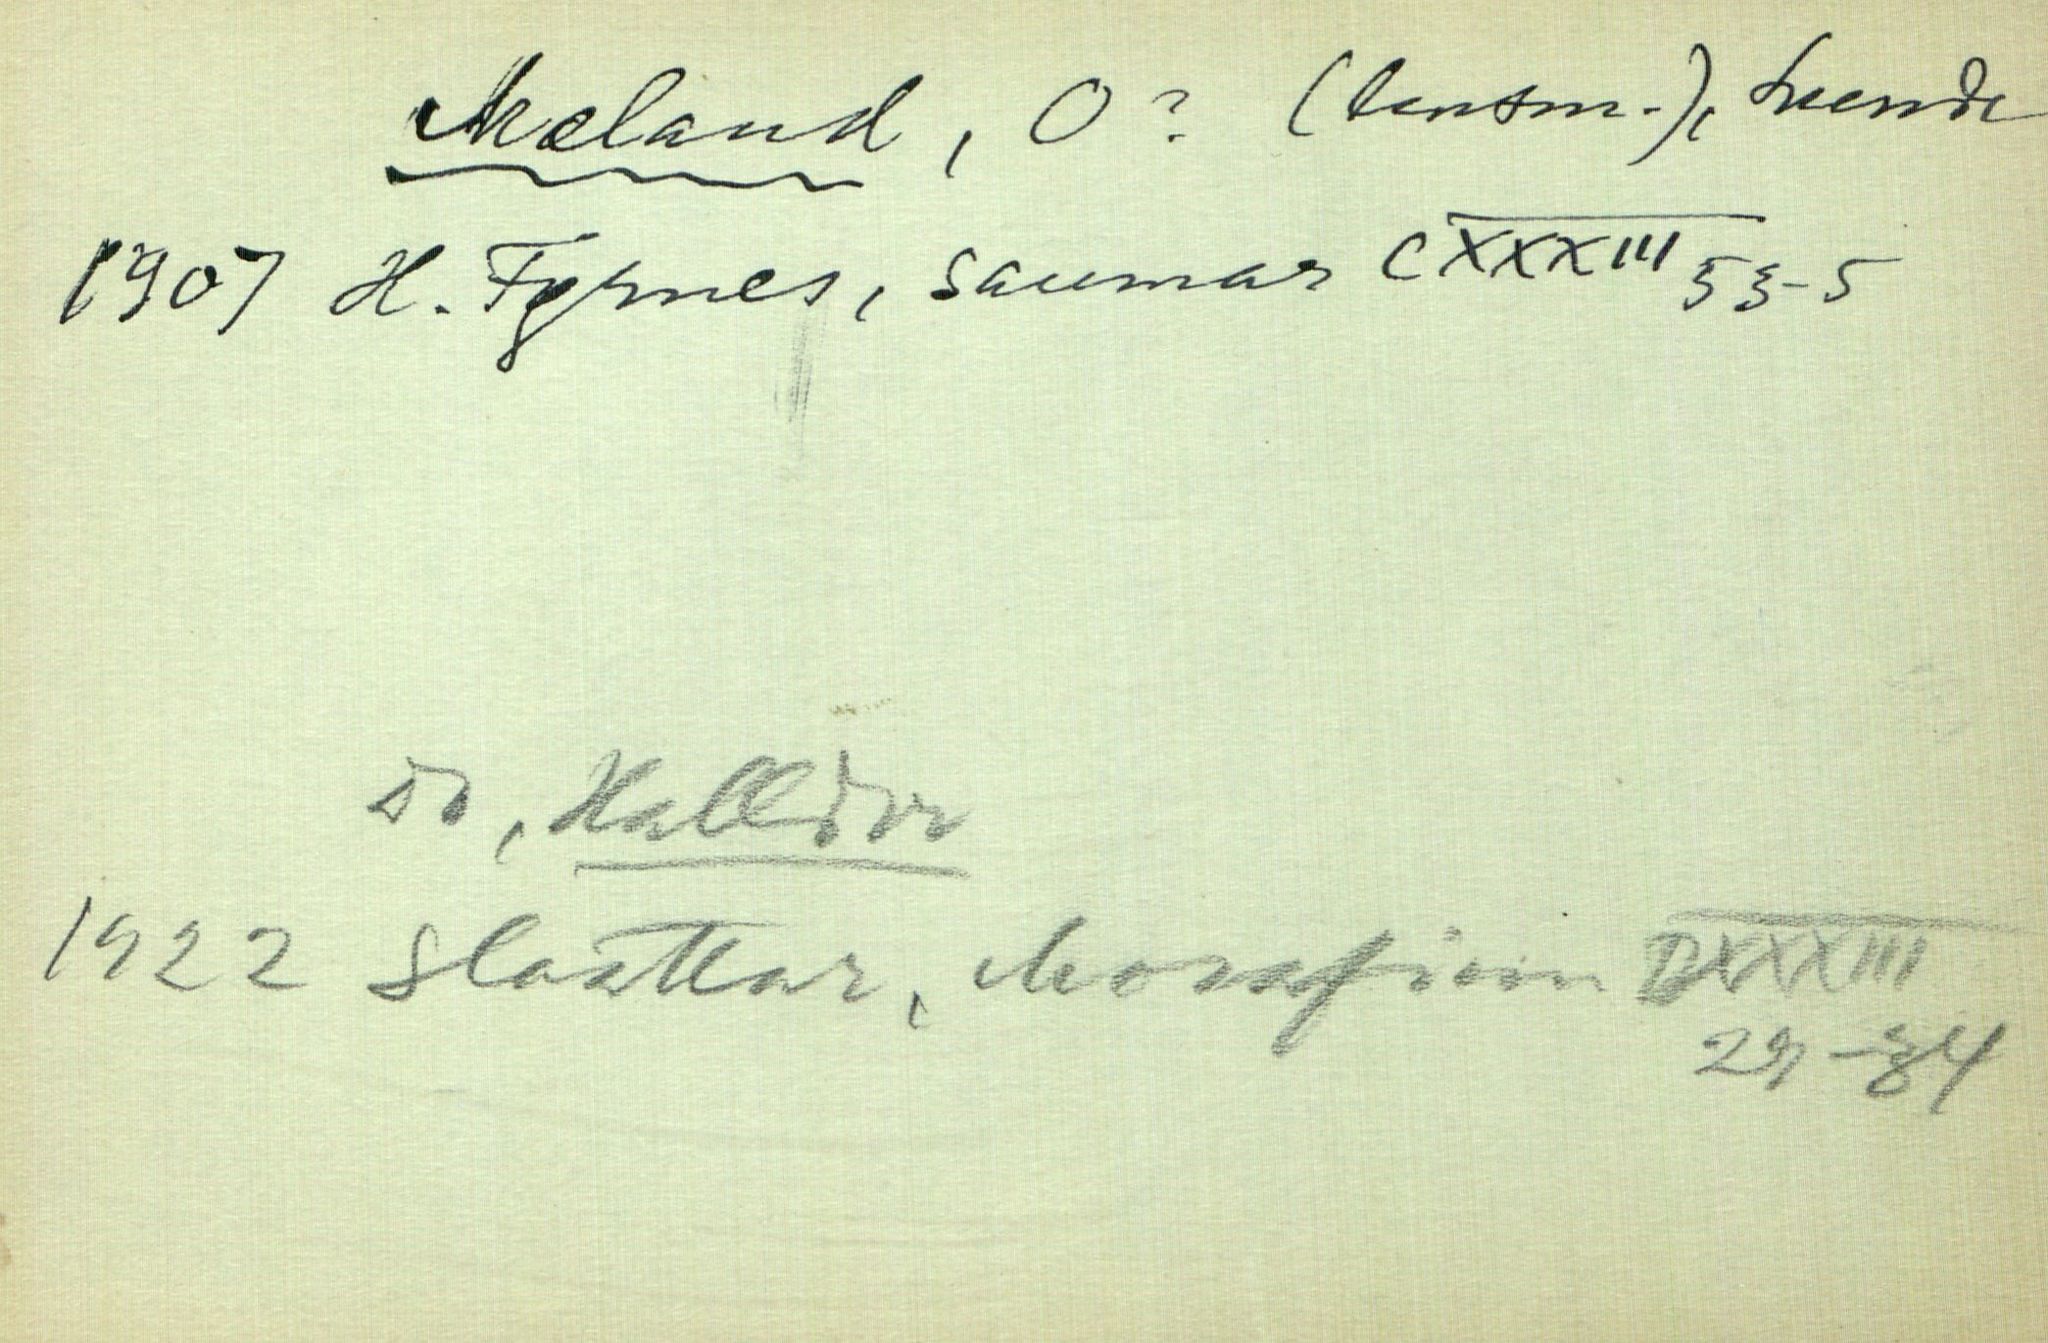 Mæland, O? (lensm.), Suende
1907 H. Fyrnes, saumar CXXXIII 53-5
do, Halldor
1922 Slåttar, Morafioin DXXXIII
29-34